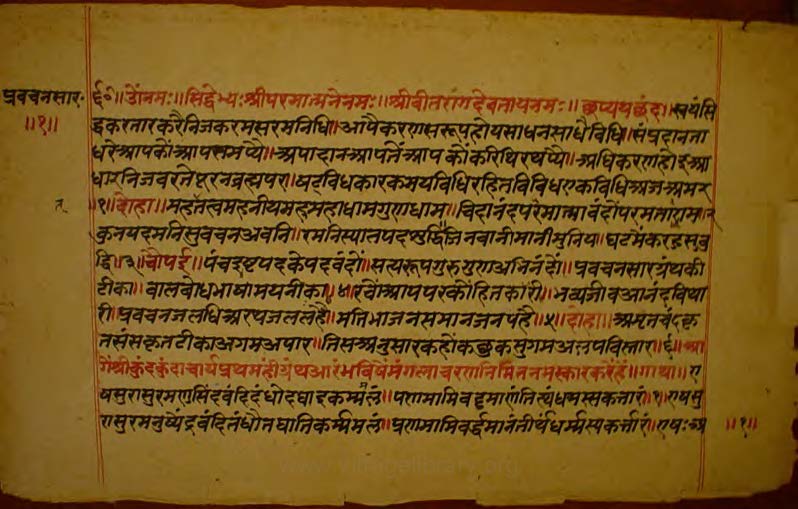 प्रवचनसार॰
॥१॥
६०॥ओंनमः॥सिद्धेभ्यःश्रीपरमात्मनेनमः॥श्रीवीतरागदेवतायनमः॥छप्पयछंद॥स्वयंसि
द्धकरतारकरैनिजकरमसरमनिधि॥आपैकरणसरूपहोयसाधनसाधैविधि॥संप्रदानता
धरेआपकौंआपसमप्पै॥अपादानआपतैंआपकौंकरिथिरथप्पै॥अधिकरणहोइआ
धारनिजवरतैपूरनब्रह्मपर॥षट्विधकारकमयविधिरहितविविधएकविधिअजअमर
॥१॥दोहा॥महातत्वमहनीयमहमहाधामगुणधाम॥चिदानंदपरमात्माबंदौंपरमताराम॥२
कुनयदमनिसुवचनअवनि॥रमनिस्यातपदशुद्धि॥जिनवानीमानीमुनिप॥घटमैंकरहुसुबु
द्धि॥३॥चौपई॥पंचइष्टपदकेपदबंदौं॥सत्यरूपगुरुगुणअभिनंदौं॥प्रवचनसारग्रंथकी
टीका॥बालबोधभाषामयनीका॥४॥रचौंआपपरकौंहितकारी॥भव्यजीवआनंदविथा
री॥प्रवचनजलधिअरथजललैहै॥मतिभाजनसमानजनपैहै॥५॥दोहा॥अमृतचंदकृ
तसंसकृतटीकाअगमअपार॥तिसअनुसारकहौंकछुकसुगमअलपविस्तार॥६॥आ
गेंश्रीकुंदकुंदाचार्यप्रथमहीग्रंथआरंभविषैंमंगलाचरणनिमित्तनमस्कारकरेहैं॥गाथा॥ए
ससुरासुरमणुसिंदवंदिदंधोदघाइकम्ममलं॥पणमामिवड्ढमाणंतित्थंधम्मस्सकत्तारं॥१॥एषसु
रासुरमनुष्येंद्रवंदितंधौतघातिकर्म्ममलं॥प्रणमामिवर्द्धमानंतीर्थंधर्म्मस्यकर्त्तारं॥एषःअ
॥१॥